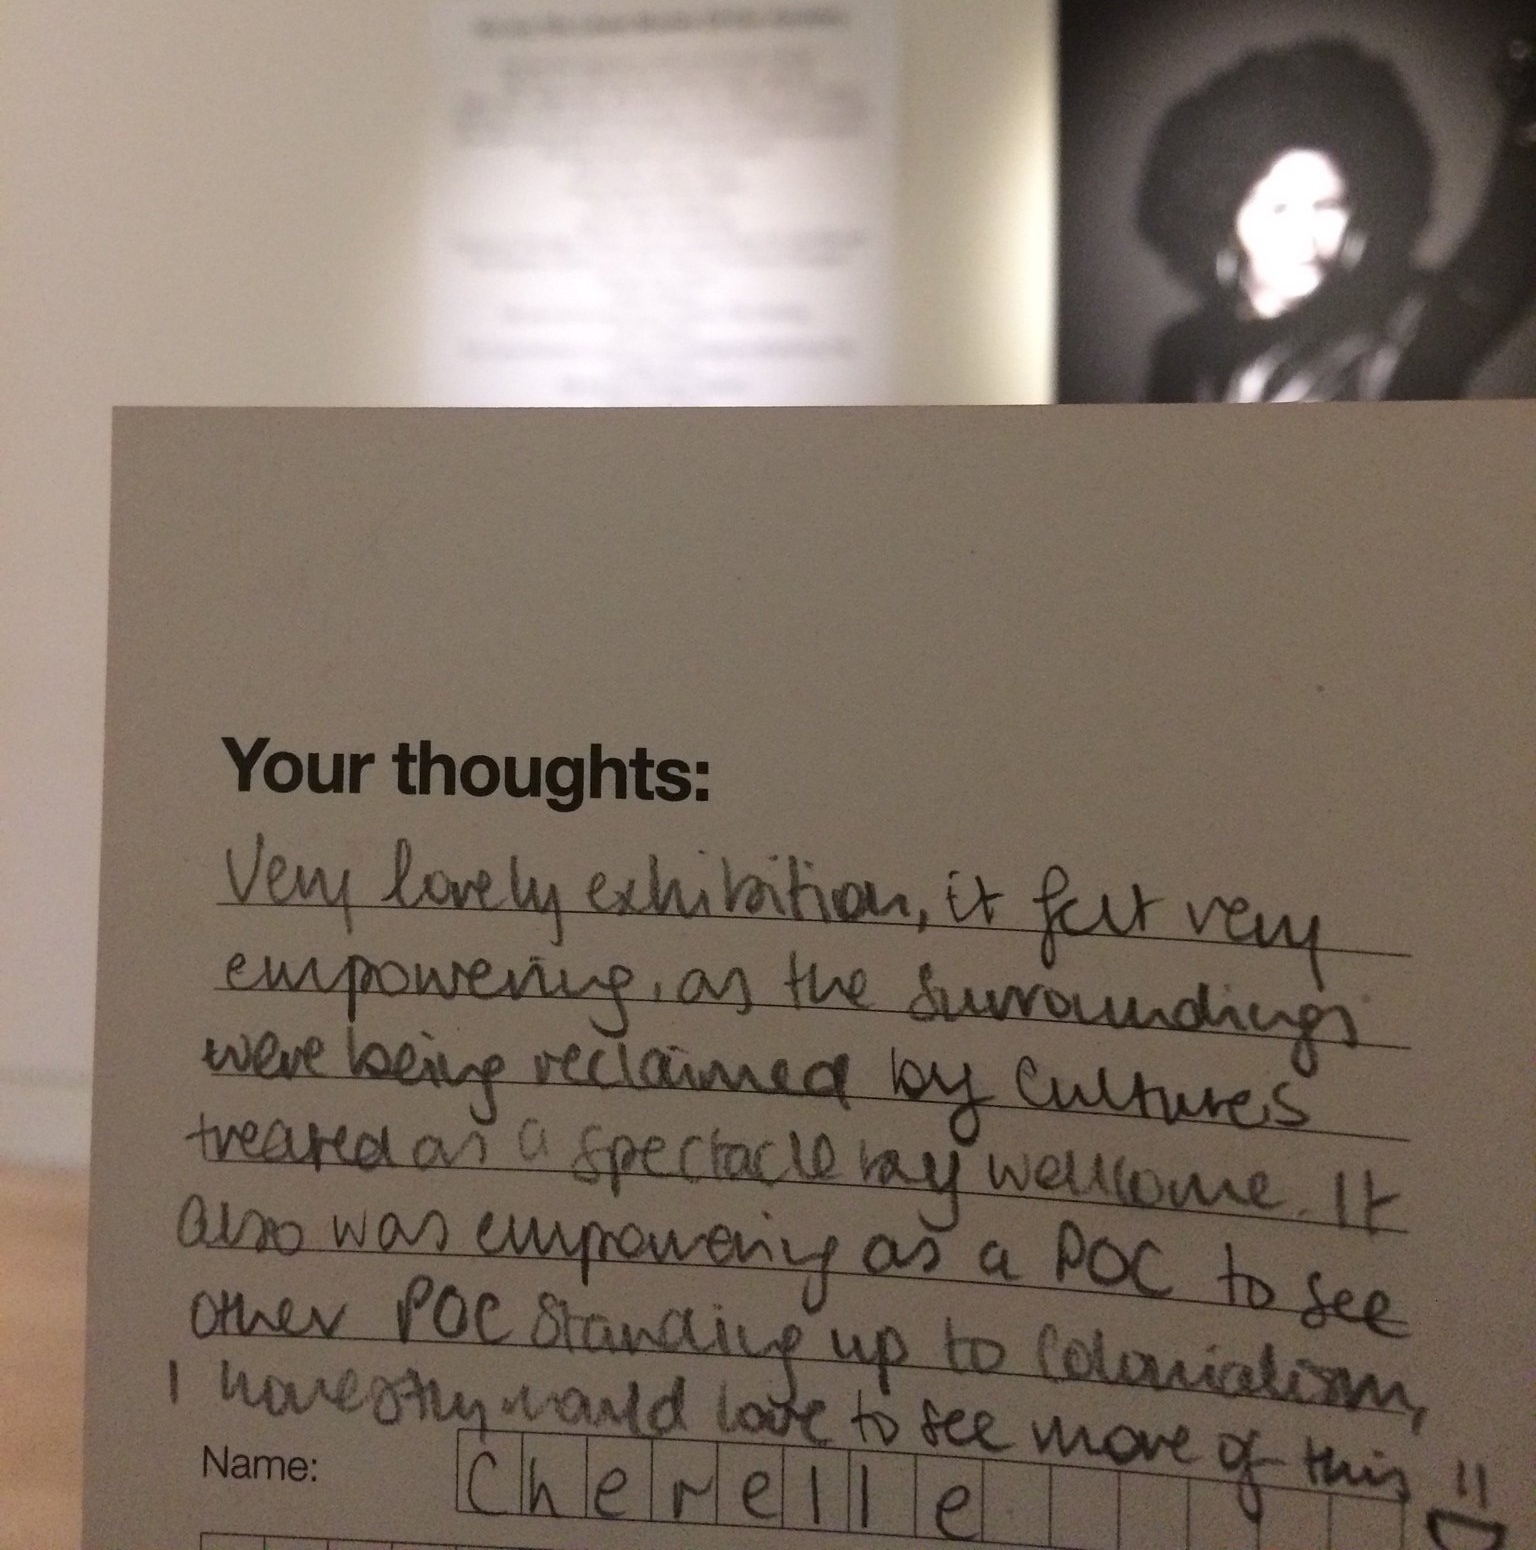 Your thoughts:
Very lovely exhibition, it felt very
empowering, as the surroundings
were being reclaimed by Cultures
treated as a spectacle by wellcome. It
also was empowering as a POC to see
other POC standing up to Colonialism,
I honestly would love to see more of this
Name: Cherelle